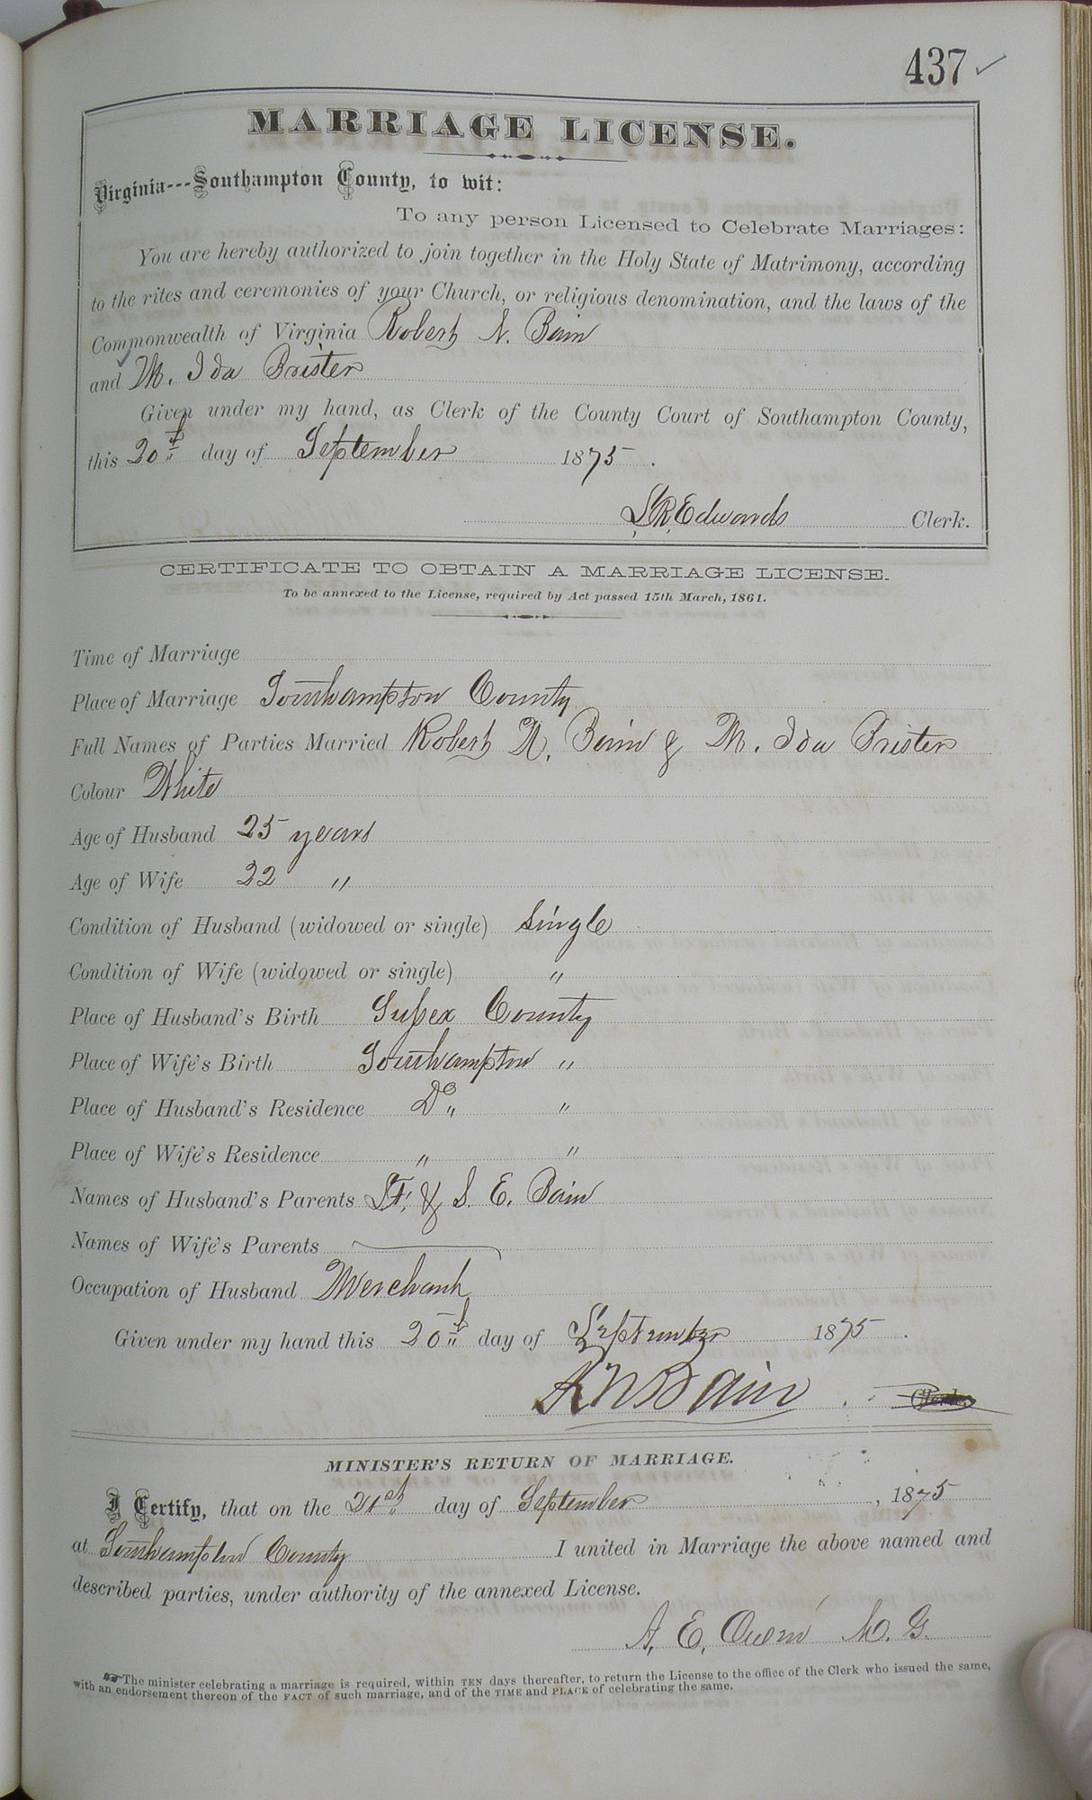 437
MARRIAGE LICENSE.
Virginia---Southampton County, to wit:
To any person Licensed to Celebrate Marriages:
You are hereby authorized to join together in the Holy State of Matrimony, according
to the rites and ceremonies of your Church, or religious denomination, and the laws of the
Commonwealth of Virginia Robert N. Bain
and M. Ida Prister
Given under my hand, as Clerk of the County Court of Southampton County,
this 20th day of September 1875.
L. R. Edwards Clerk.
CERTIFICATE TO OBTAIN A MARRIAGE LICENSE.
To be annexed to the License, required by Act passed 15th March, 1861.
Time of Marriage
Place of Marriage Southampton County
Full Names of Parties Married Robert N. Bain & M. Ida Prister
Colour White
Age of Husband 25 years
Age of Wife 22 "
Condition of Husband (widowed or single) Single
Condition of Wife (widowed or single) "
Place of Husband's Birth Sussex County
Place of Wife's Birth Southampton "
Place of Husband's Residence Do "
Place of Wife's Residence " "
Names of Husband's Parents & S. E. Bain
Names of Wife's Parents
Occupation of Husband Merchant
Given under my hand this 20th day of September 1875.
R N Bain Clerk.
MINISTER'S RETURN OF MARRIAGE.
I Certify, that on the 21st day of September, 1875
at Southampton County I united in Marriage the above named and
described parties, under authority of the annexed License.
A. E. Owen M. G.
The minister celebrating a marriage is required, within TEN days thereafter, to return the License to the office of the Clerk who issued the same,
with an endorsement thereon of the FACT of such marriage, and of the TIME and PLACE of celebrating the same.